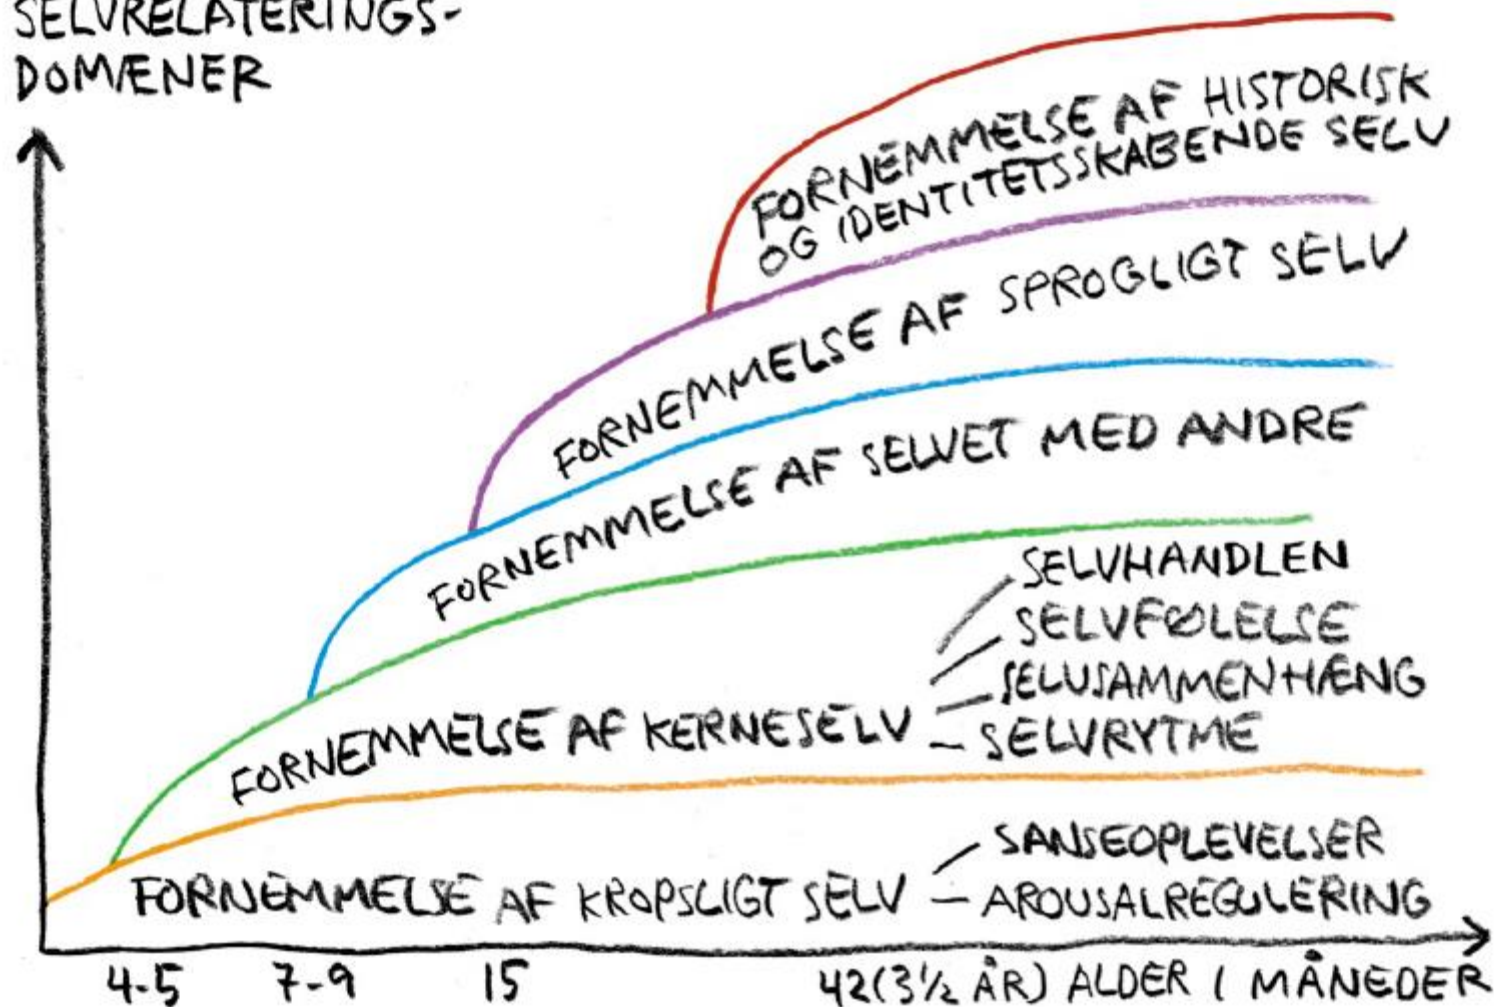 SELVRELATERINGS-
DOMÆNER
FORNEMMELSE AF HISTORISK
OG IDENTITETSSKABENDE SELV
FORNEMMELSE AF SPROGLIGT SELV
FORNEMMELSE AF SELVET MED ANDRE
FORNEMMELSE AF KERNESELV
SELVHANDLEN
SELVFØLELSE
SELVSAMMENHÆNG
SELVRYTME
FORNEMMELSE AF KROPSLIGT SELV
SANSEOPLEVELSER
AROUSALREGULERING
4-5 7-9 15 42 (3½ ÅR) ALDER I MÅNEDER